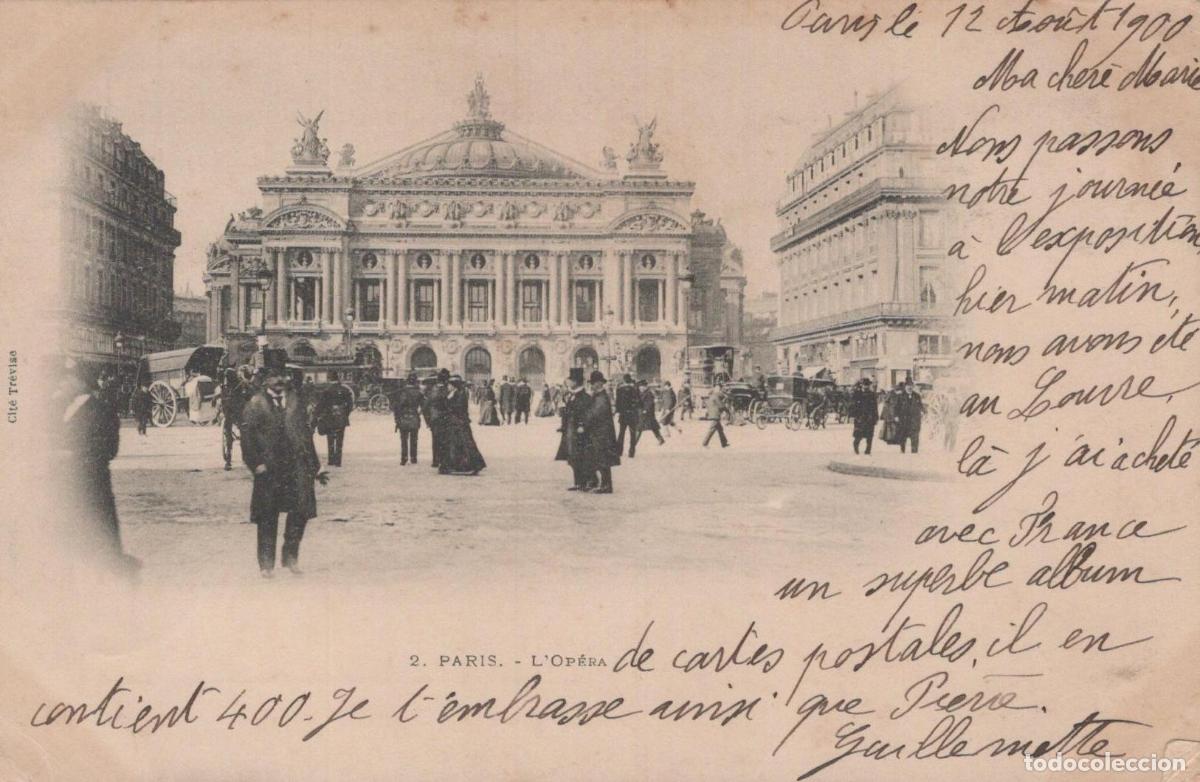 Paris le 12 Août 1900
Ma chère Marie
Nous passons
notre journée
à l'exposition
hier matin,
nous avons été
au Louvre.
là j'ai acheté
avec France
un superbe album
de cartes postales, il en
contient 400. Je t'embrasse ainsi que Pierre.
Guillemette
2. PARIS. - L'OPÉRA
Cité Trévise
todocoleccion